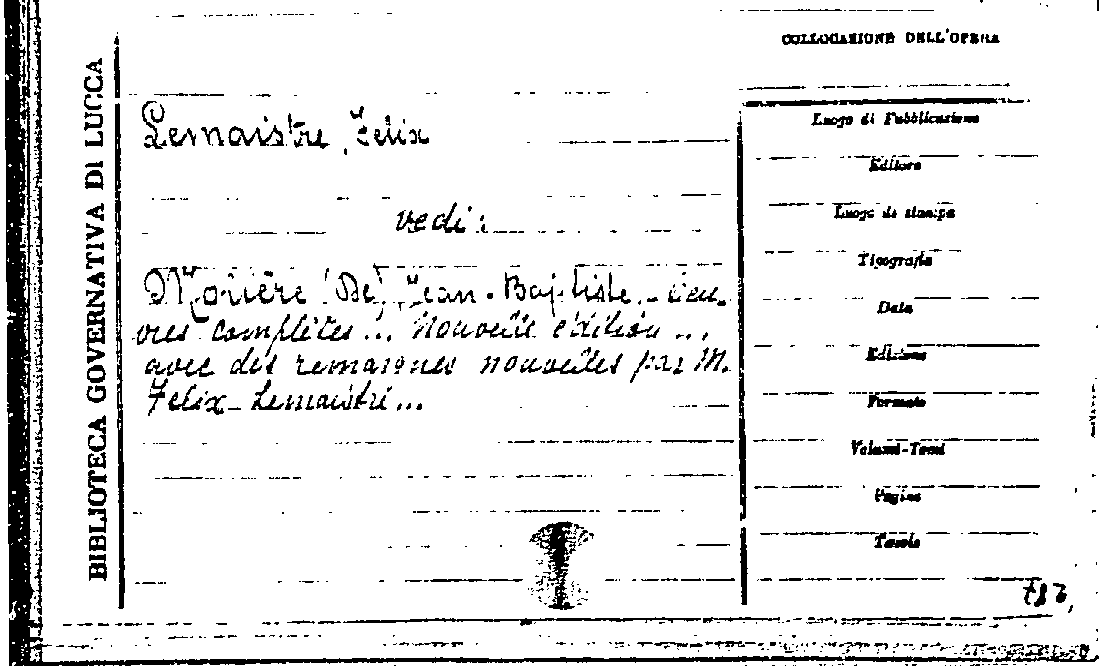 BIBLIOTECA GOVERNATIVA DI LUCCA
COLLOCAZIONE DELL'OPERA
Lemaistre, Felix
vedi:
Molière (De) Jean-Baptiste - Oeu-
vres complètes... Nouvelle édition...
avec des remarques nouvelles par M.
Felix Lemaistre...
Luogo di Pubblicazione
Editore
Luogo di stampa
Tipografia
Data
Edizione
Formato
Volumi-Tomi
Pagine
Tavole